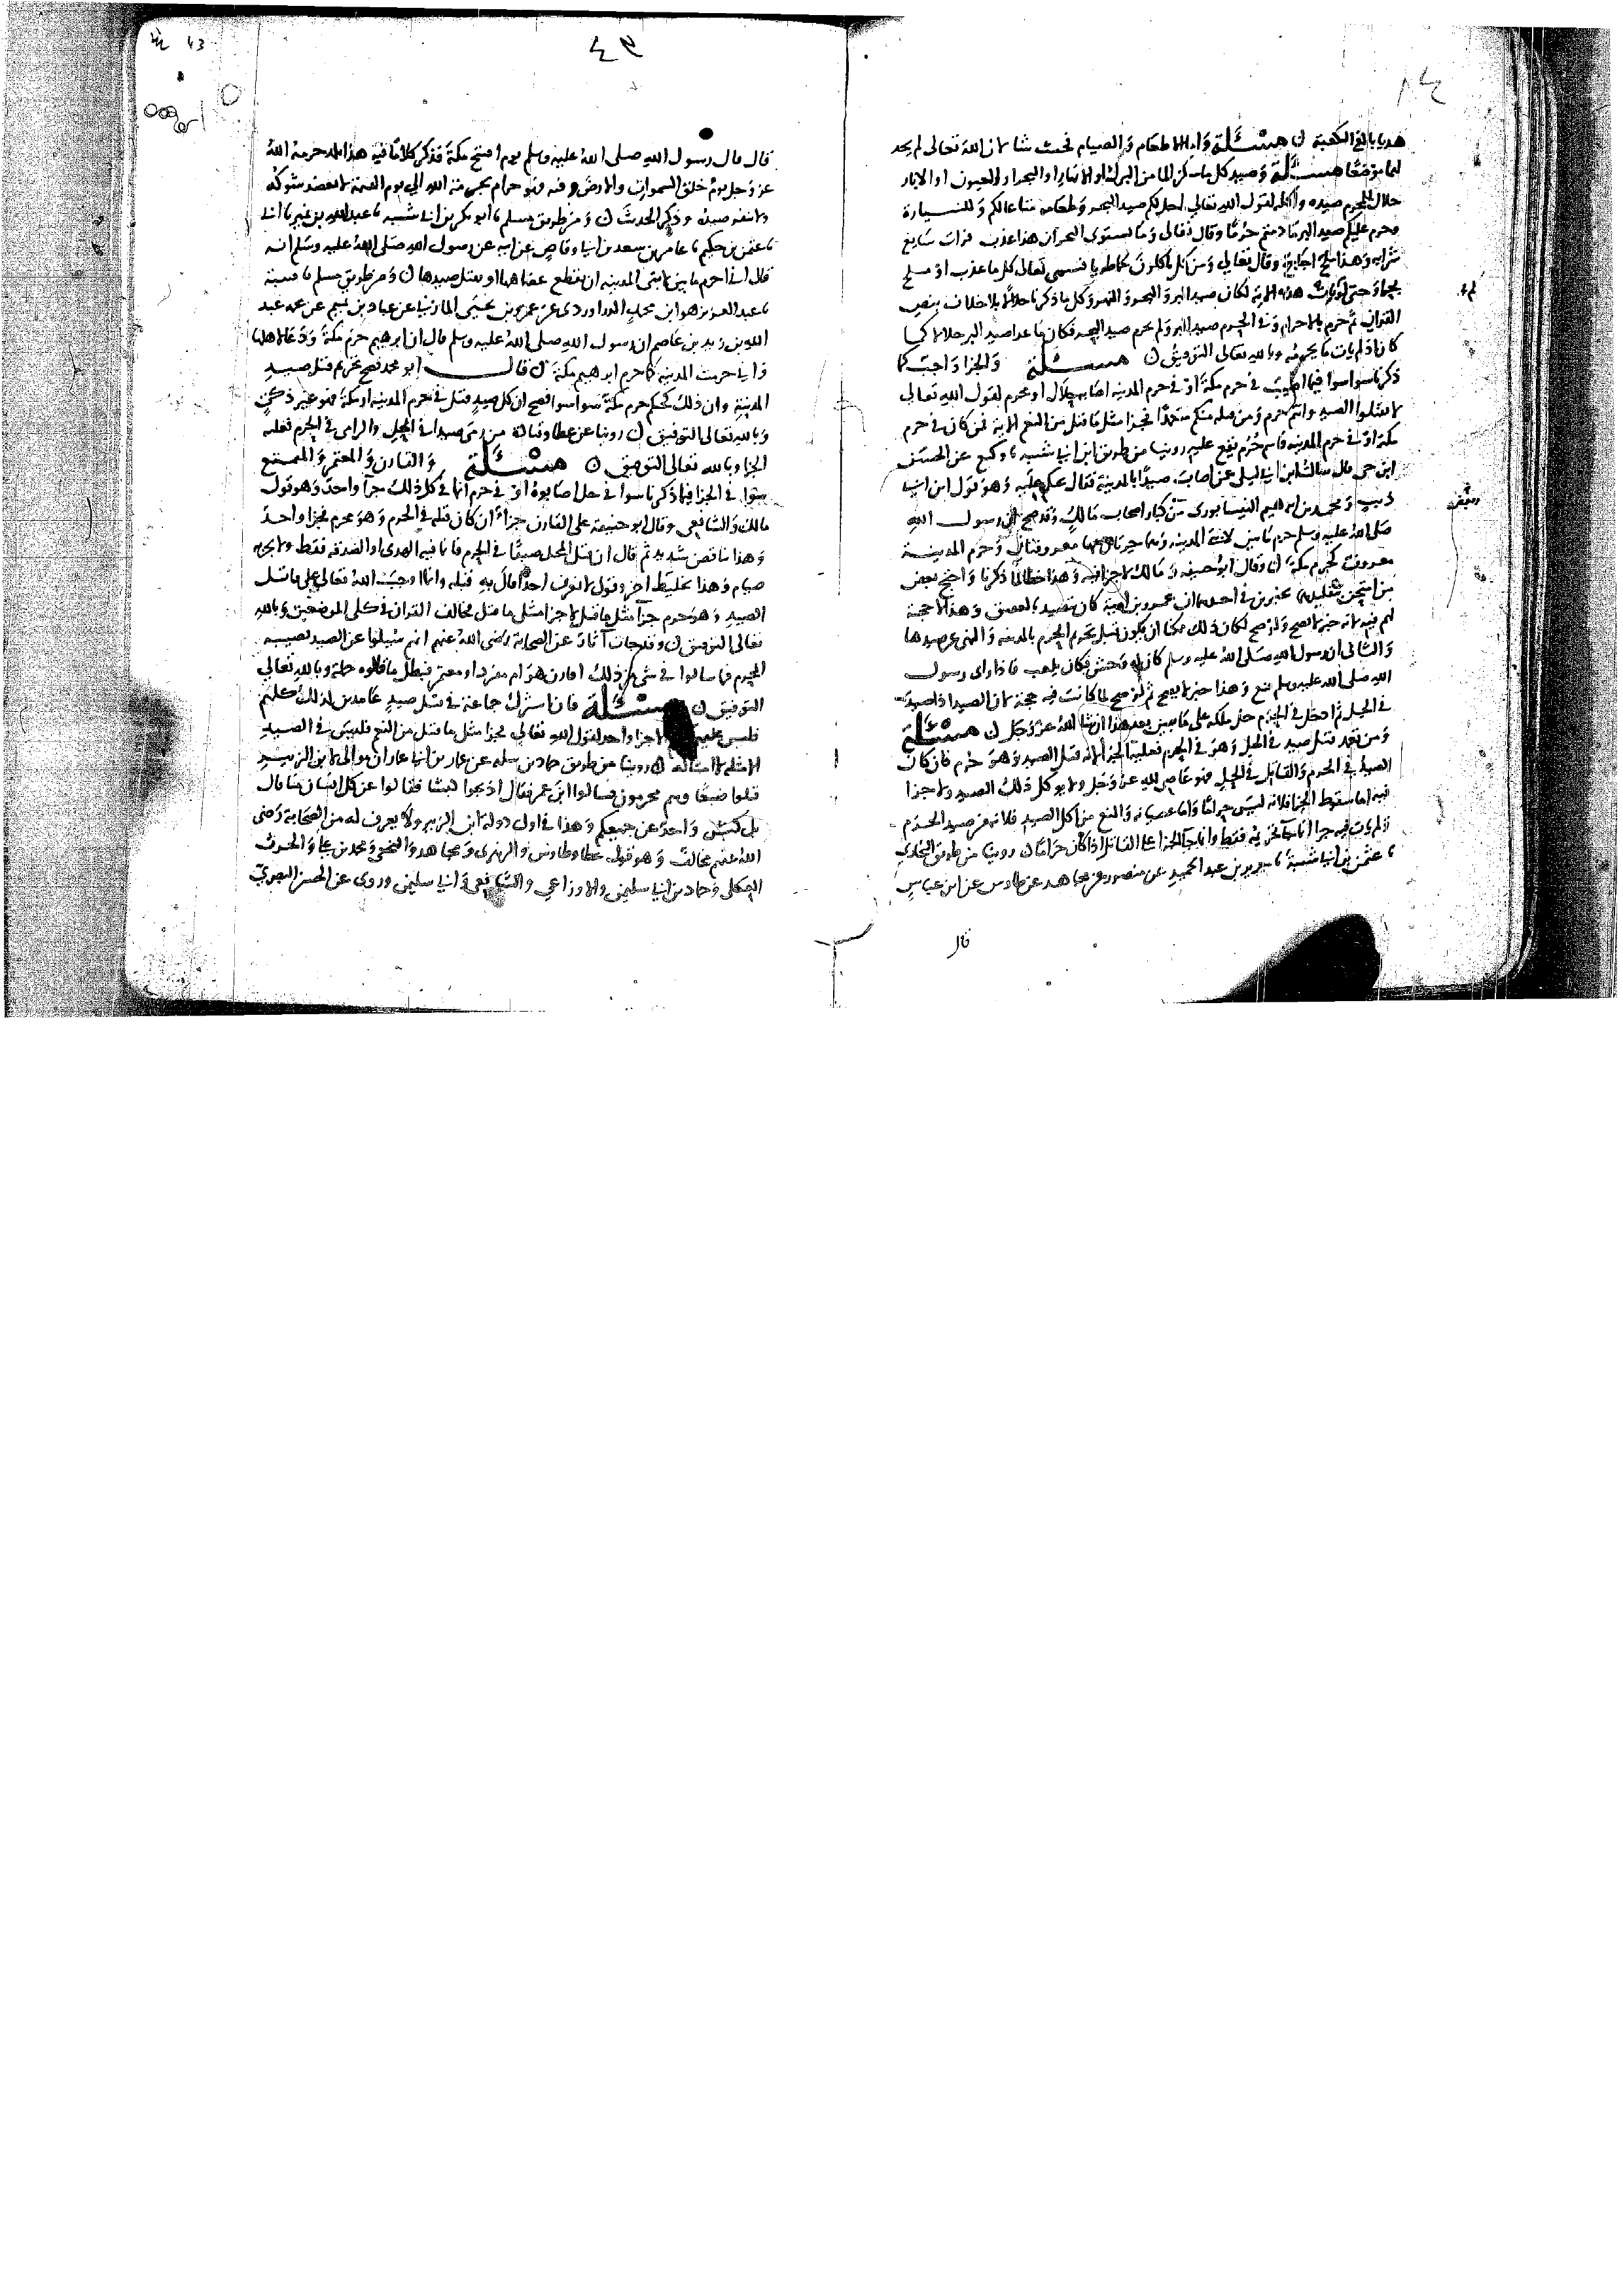 هديا بالغ الكعبة ن مسئلة واما الاطعام والصيام فحيث شا لان الله تعالى لم يحد
لهما موضعا مسئلة وصيد كل ما سكن الما من البرك او الانهار او البحر او العيون او الابار
حلال للمحرم صيده واكله لقول الله تعالى احل لكم صيد البحر وطعامه متاعا لكم وللسيارة
وحرم عليكم صيد البر ما دمتم حرما وقال تعالى وما يستوى البحران هذا عذب فرات سايغ
شرابه وهذا ملح اجاج وقال تعالى ومن كل تاكلون لحما طريا فسمى تعالى كل ما عذب او ملح
بحرا وحتى لو لم يات هذه الاية لكان صيد البر والبحر والنهر وكل ما ذكرنا حلالا بلا خلاف بنص
القران ثم حرم بالاحرام وفى الحرم صيد البر ولم يحرم صيد البحر فكان ما عدا صيد البر حلالا كما
كان اذ لم يات ما يحرمه وبالله تعالى التوفيق ن مسئلة والجزا واجب كما
ذكرنا سوا سوا فيما اصيب فى حرم مكة او فى حرم المدينه اصابه حلال او محرم لقول الله تعالى
لا تقتلوا الصيد وانتم حرم ومن قتله منكم متعمدا فجزا مثل ما قتل من النعم الاية فمن كان فى حرم
مكة او فى حرم المدينه فاسم حرم يقع عليه روينا من طريق ابن ابى شيبه نا وكيع عن الحسن
ابن حى قال سالت ابن ابى ليلى عن اصاب صيدا بالمدينة فقال يحكم عليه وهو قول ابن ابى
ذيب ومحمد بن ابرهيم النيسابورى من كبار اصحاب مالك وقد صح ان رسول الله
صلى الله عليه وسلم حرم ما بين لابتى المدينه وهما حرتان بها معروفتان وحرم المدينة
معروف كحرم مكة ن وقال ابو حنيفه ومالك لا جزا فيه وهذا خطا لما ذكرنا واحتج بعض
من امتحن بتقليدهما بخبرين فى احدهما ان عمرو بن امية كان يتصيد بالعقيق وهذا لا حجة
لهم فيه لانه خبر لا يصح ولو صح لكان ذلك ممكنا ان يكون قبل تحريم الحرم بالمدينه والنهى عن صيدها
والثانى ان رسول الله صلى الله عليه وسلم كان له وحش فكان يلعب فاذا راى رسول
الله صلى الله عليه وسلم قبع وهذا خبر لا يصح ثم لو صح لما كانت فيه حجة لان الصيد اذا صيد
فى الحل ثم ادخل فى الحرم حل ملكه على ما نبين بعد هذا ان شا الله عز وجل ن مسئلة
ومن تعمد قتل صيد فى الحل وهو فى الحرم فعليه الجزا لانه قتل الصيد وهو حرم فان كان
الصيد فى الحرم والقاتل فى الحل فهو عاص لله عز وجل ولا يوكل ذلك الصيد ولا جزا
فيه اما سقوط الجزا فلانه ليس حراما واما عصيانه والمنع من اكل الصيد فلانه من صيد الحرم
ولم يات فيه جزا انما جا تحريمه فقط وانما جا الجزا على القاتل اذا كان حراما ن روينا من طريق البخارى
نا عثمن بن ابى شيبة نا جرير بن عبد الحميد عن منصور عن مجاهد عن طاوس عن ابن عباس
قال
قال قال رسول الله صلى الله عليه وسلم يوم افتتح مكة فذكر كلاما فيه هذا بلد حرمه الله
عز وجل يوم خلق السموات والارض وهو حرام بحرمة الله الى يوم القيمة لا يعضد شوكه
ولا ينفر صيده وذكر الحديث ن ومن طريق مسلم نا ابو بكر بن ابى شيبه نا عبد الله بن نمير نا ابى
نا عثمن بن حكيم نا عامر بن سعد بن ابى وقاص عن ابيه عن رسول الله صلى الله عليه وسلم انه
قال انى احرم ما بين لابتى المدينه ان يقطع عضاهها او يقتل صيدها ن ومن طريق مسلم نا قتيبة
نا عبد العزيز هو ابن محمد الدراوردى عن عمرو بن يحيى المازنى عن عباد بن تميم عن عمه عبد
الله بن زيد بن عاصم ان رسول الله صلى الله عليه وسلم قال ان ابرهيم حرم مكة ودعا لاهلها
وانى حرمت المدينه كما حرم ابرهيم مكة ن قال ابو محمد فصح تحريم قتل صيد
المدينة وان ذلك كحكم حرم مكة سوا سوا فصح ان كل صيد قتل فى حرم المدينه او مكة فهو غير ذكى
وبالله تعالى التوفيق ن روينا عن عطا وقتادة من رمى صيدا فى الحل والرامى فى الحرم فعليه
الجزا وبالله تعالى التوفيق ن مسئلة والقارن والمعتمر والمتمتع
سوا فى الجزا فيما ذكرنا سوا فى حل اصابوه او فى حرم انما فى كل ذلك جزا واحد وهو قول
مالك والشافعى وقال ابو حنيفة على القارن جزاان فان كان قتله فى الحرم وهو محرم فجزا واحد
وهذا تناقض شديد ثم قال ان قتل المحل صيدا فى الحرم فانما فيه الهدى او الصدقه فقط ولا يجزيه
صيام وهذا تخليط اخر وقول لا نعرف احدا قال به قبله وانما اوجب الله تعالى على قاتل
الصيد وهو حرم جزا مثل ما قتل لا جزا مثلى ما قتل مخالف القران فى كلى الموضعين وبالله
تعالى التوفيق ن وقد جات اثار عن الصحابة رضى الله عنهم انهم سئلوا عن الصيد يصيبه
المحرم فما سالوا فى شى من ذلك اقارن هو ام مفرد او معتمر فبطل ما قالوه جملة وبالله تعالى
التوفيق ن مسئلة فان اشترك جماعة فى قتل صيد عامدين لذلك كلهم
فليس عليهم الا جزا واحد لقول الله تعالى فجزا مثل ما قتل من النعم فليس فى الصيد
الا مثله لا امثاله ن روينا من طريق حماد بن سلمه عن عمار بن ابى عمار ان موالى لابن الزبير
قتلوا ضبعا وهم محرمون فسالوا ابن عمر فقال اذبحوا كبشا فقالوا عن كل انسان منا قال
بل كبش واحد عن جميعكم وهذا فى اول دولة ابن الزبير ولا يعرف له من الصحابة رضى
الله عنهم مخالف وهو قول عطا وطاوس والزهرى ومجاهد والنخعى ومحمد بن على والحرث
العكلى وحماد بن ابى سليمن والاوزاعى والشافعى وابى سليمن وروى عن الحسن البصرى